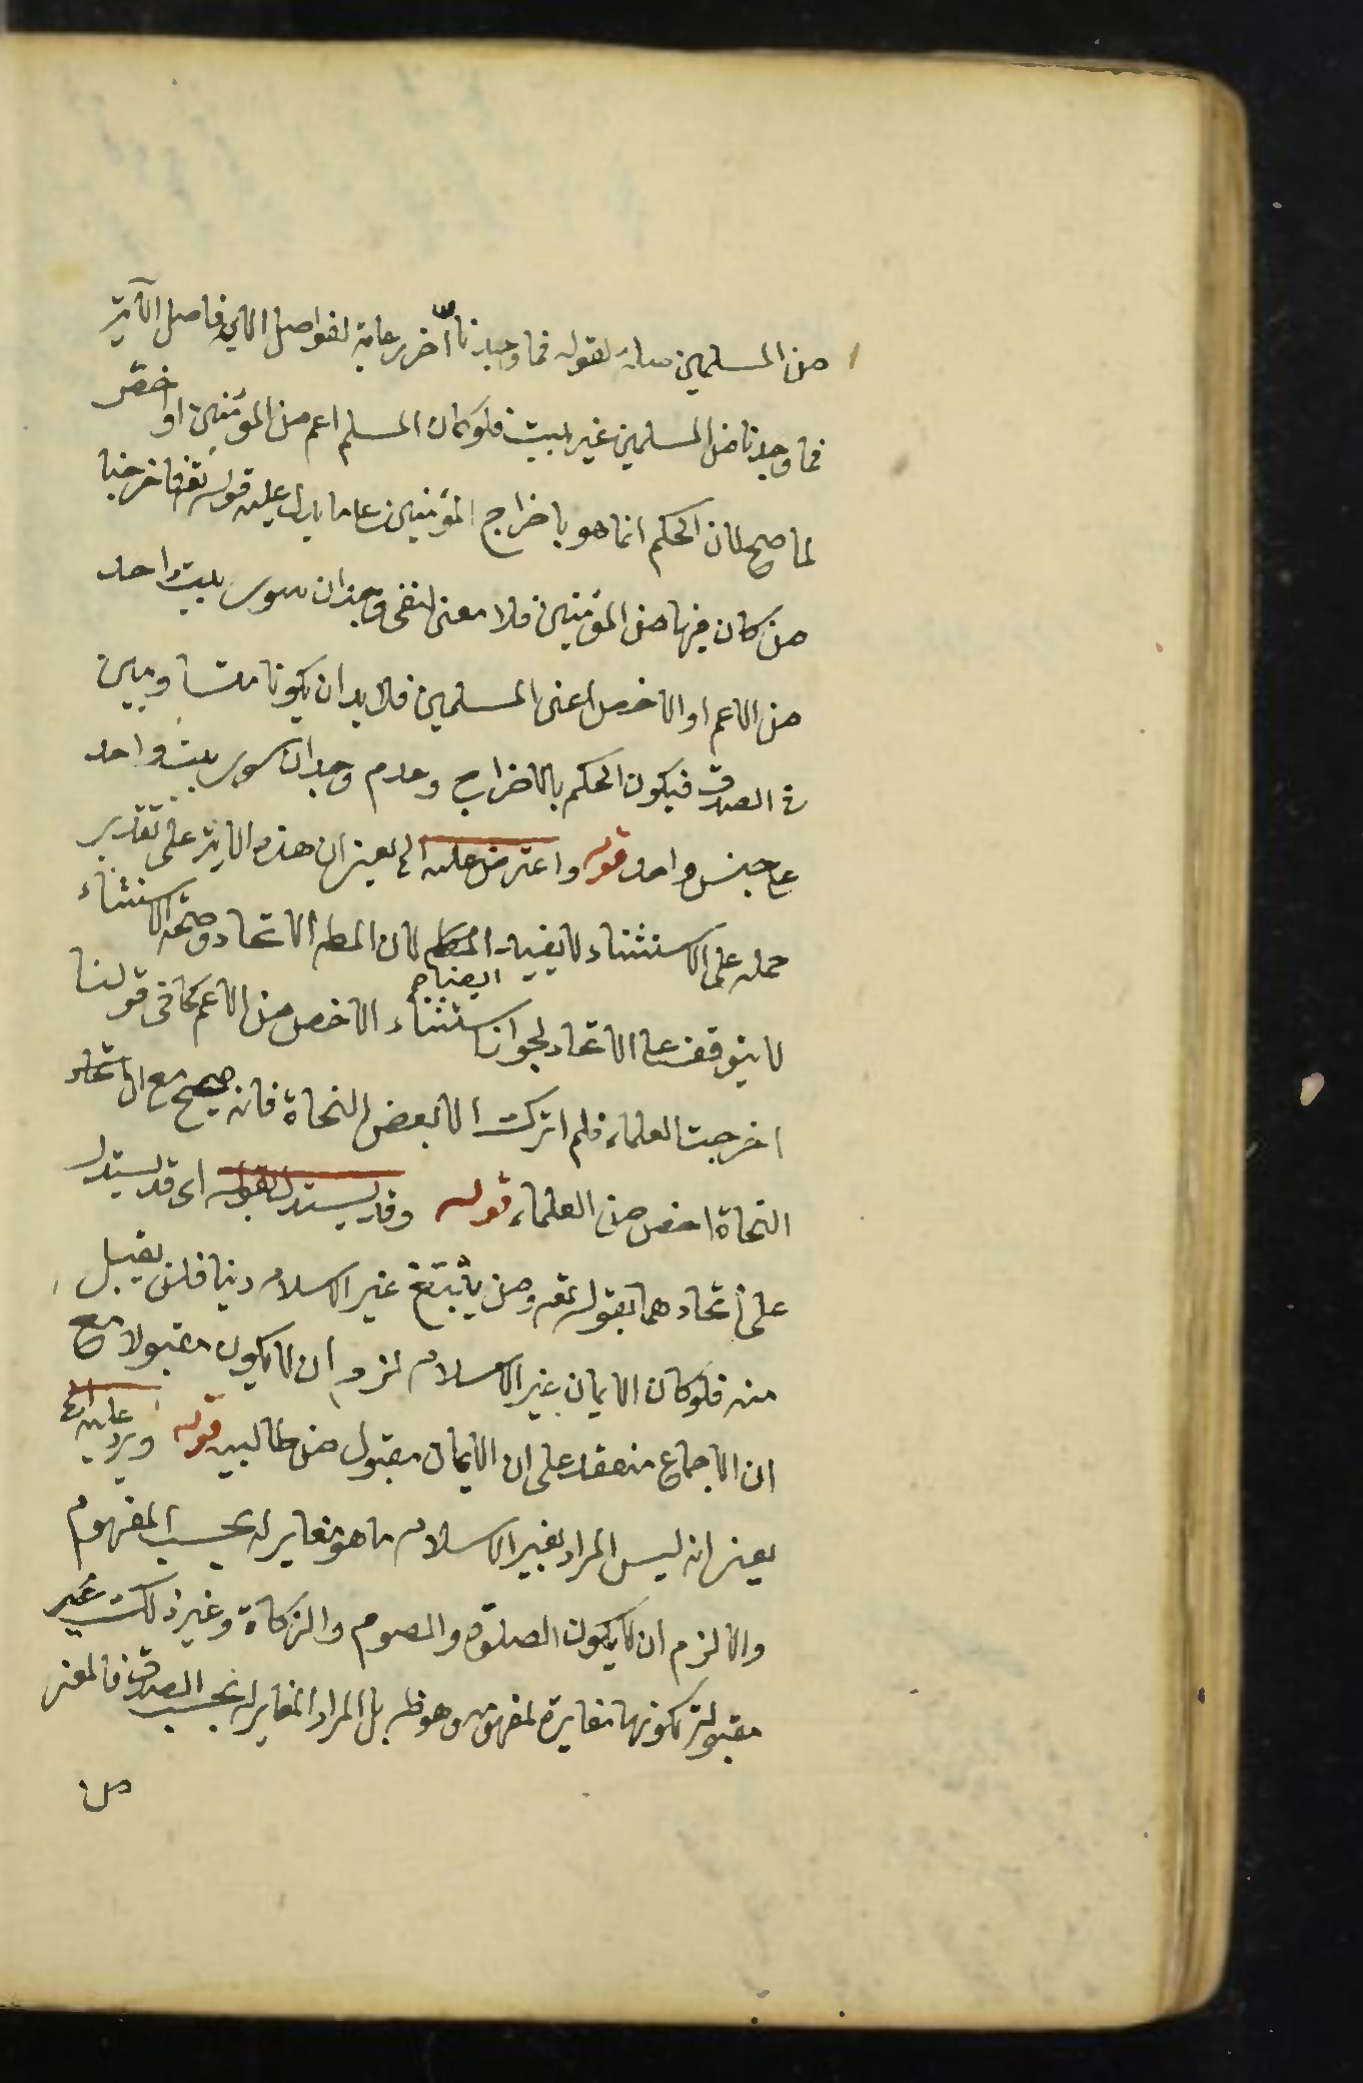 من المسلمين صلة لقوله فما وجدنا اخر رعاية لفواصل الآي فاصل الآية
فما وجدنا من المسلمين غير بيت فلو كان المسلم اعم من المؤمنين او اخص
لما صح لان الحكم انما هو باخراج المؤمنين على ما يدل عليه قوله تع فاخرجنا
من كان فيها من المؤمنين فلا معنى لنفي وجدان سوى بيت واحد
من الاعم او الاخص اعنى المسلمين فلا بد ان يكونا متساويين
في الصدق فيكون الحكم بالاخراج وعدم وجدان سوى بيت واحد
على جنس واحد قوله واعترض عليه الخ يعنى ان هذه الاية على تقدير
حمله على الاستثناء لا يفيد المط لان المط الاتحاد وصحة الاستثناء
لا يتوقف على الاتحاد لجواز استثناء الاخص من الاعم كما فى قولنا
ايضا صح
اخرجت العلماء فلم اترك الا بعض النحاة فانه صحيح مع ان
النحاة اخص من العلماء قوله وقد يستدل بقوله اى قد يستدل
على اتحادهما بقوله تع ومن يبتغ غير الاسلام دينا فلن يقبل
منه فلو كان الايمان غير الاسلام لزم ان لا يكون مقبولا مع
ان الاجماع منعقد على ان الايمان مقبول من طالبيه قوله ويرد عليه الخ
يعنى انه ليس المراد بغير الاسلام ما هو مغاير له بحسب المفهوم
والا لزم ان لا يكون الصلوة والصوم والزكاة وغير ذلك غير
مقبولة لكونها مغايرة لمفهومه وهو ظ بل المراد المغاير له بحسب الصدق فالمعنى
من